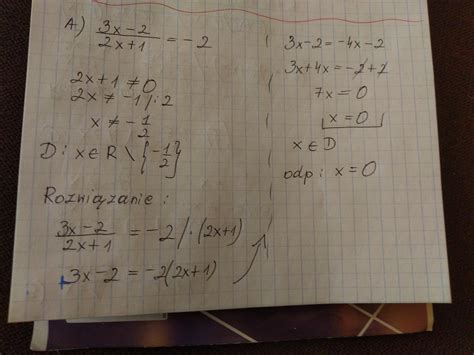 A) \frac{3x-2}{2x+1} = -2
2x+1 ≠ 0
2x ≠ -1 /:2
x ≠ -\frac{1}{2}
D: x∈R \ {-\frac{1}{2}}
Rozwiązanie:
\frac{3x-2}{2x+1} = -2 /·(2x+1)
3x-2 = -2(2x+1)
3x-2 = -4x-2
3x+4x = -2+2
7x = 0
x = 0
x ∈ D
odp: x = 0